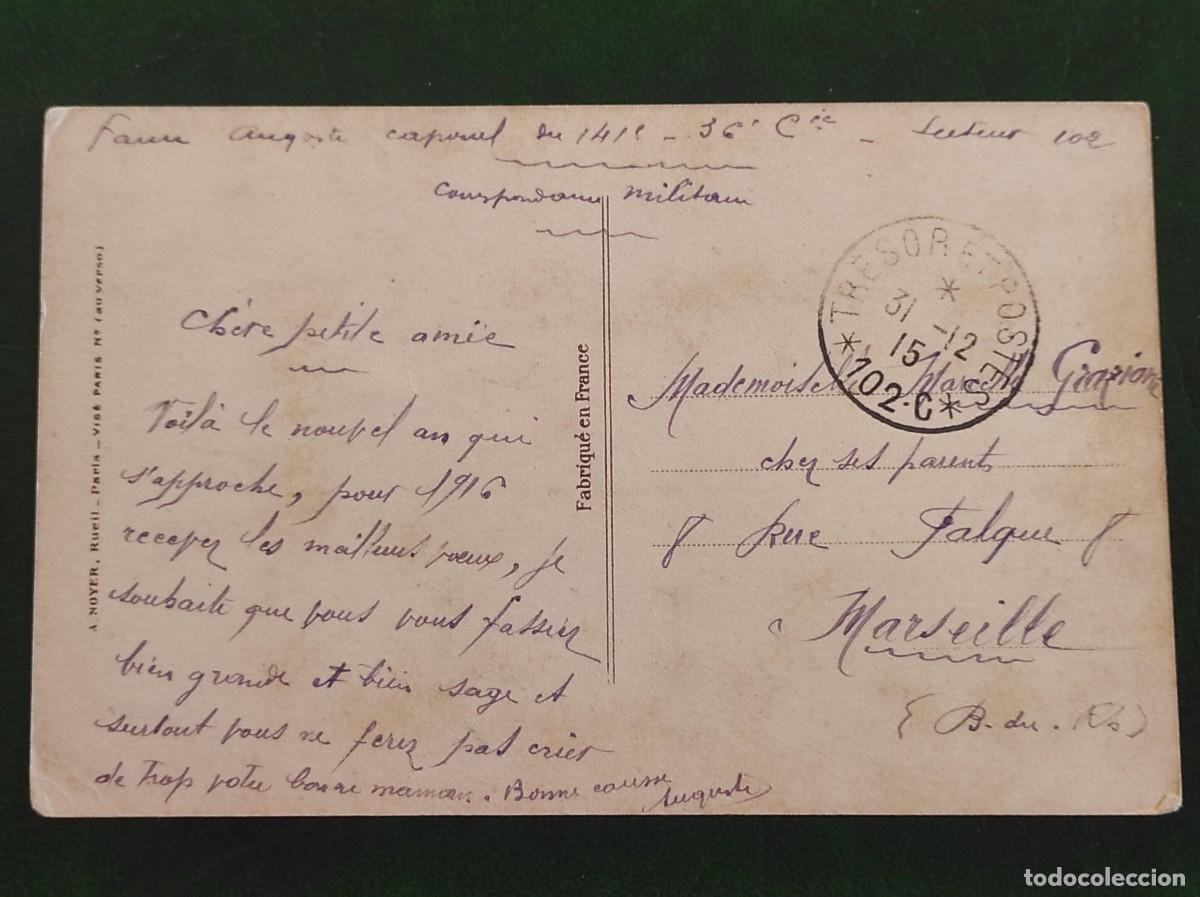 Auguste caporal du 141e - 36e Cie - Secteur 102
Correspondance militaire
TRESOR ET POSTES
31 -12
15
*102·C*
A. NOYER, Rueil _ Paris _ VISÉ PARIS No (au verso)
Fabriqué en France
Chère petite amie
Voilà le nouvel an qui
s'approche, pour 1916
recevez les meilleurs voeux, je
souhaite que vous vous fassiez
bien grande et bien sage et
surtout vous ne ferez pas crier
de trop votre bonne maman. Bonne
Auguste
Mademoiselle Graziani
chez ses parents
8 Rue Falque 8
Marseille
(B-du-Rh)
todocoleccion